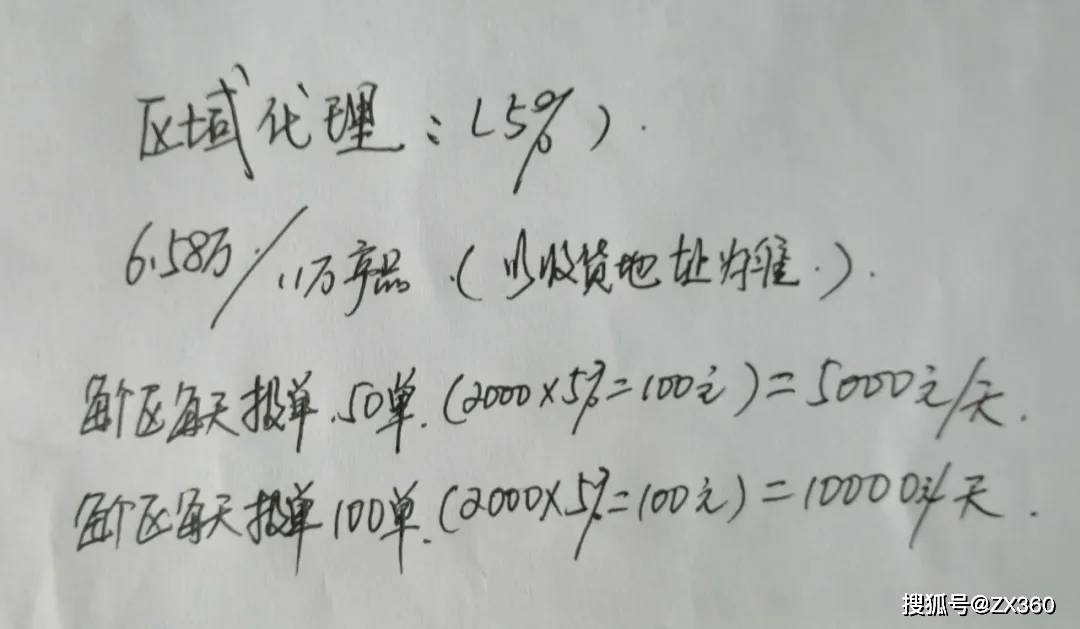 区域代理：(5%).
6.58万/11万产品.(以收货地址为准.).
每个区每天报单.50单.(2000×5%=100元)=5000元/天.
每个区每天报单100单.(2000×5%=100元)=10000元/天.
搜狐号@ZX360